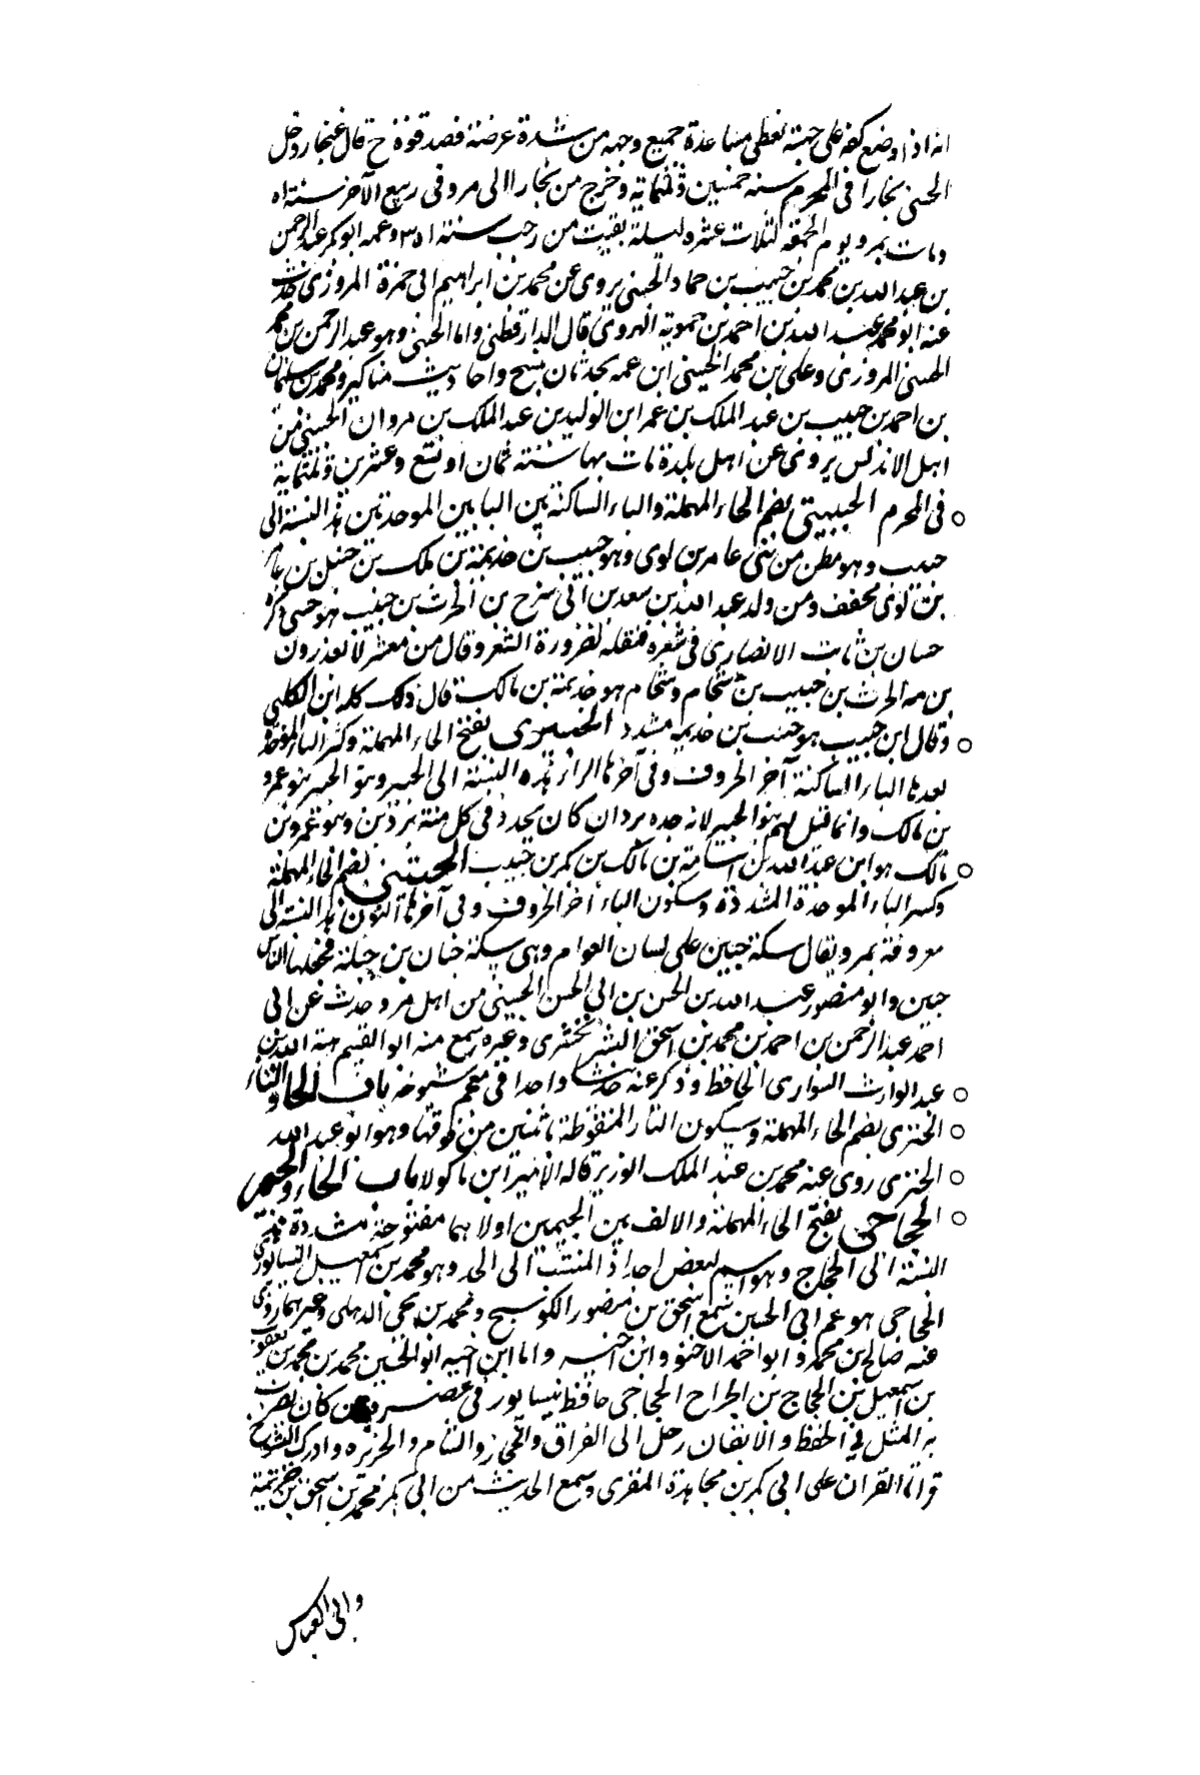 انه اذا وضع كفه على جبهته تغطى مساعدة جميع وجهه من شدة عرضه فصد قوة ح قال غنجار دخل
الحبيبى بخارا فى المحرم سنة خمسين وثلثماية وخرج من بخارا الى مرو فى ربيع الآخر سنة ٣٥١
ومات بمرو يوم الجمعة لثلاث عشره ليلة بقيت من رجب سنة ٣٥١ وعمه ابو بكر عبد الرحمن
بن عبد الله بن محمد بن حبيب بن حماد الحبيبى يروى عن محمد بن ابراهيم ابى حمزة المروزى حدث
عنه ابو محمد عبد الله بن احمد بن حموية الهروى قال الدارقطنى واما الحبيبى وهو عبد الرحمن بن محمد
الحبيبى المروزى وعلى بن محمد الحبيبى ابن عمه يحدثان بنسخ واحاديث مناكير ومحمد بن سليمان
بن احمد بن حبيب بن عبد الملك بن عمر ابن الوليد بن عبد الملك بن مروان الحبيبى من
اهل الاندلس يروى عن اهل بلده مات بها سنة ثمان او تسع وعشرين وثلثماية
فى المحرم الحبيبى بضم الحاء المهملة والياء الساكنة بين البابين الموحدتين هذه النسبة الى
حبيب وهو بطن من بنى عامر بن لوى وهو حبيب بن خذيمة بن ملك بن حنبل بن عامر
بن لوى مخفف ومن ولده عبد الله بن سعد بن ابى سرح بن الحرث بن حبيب هو حبيبى ذكره
حسان بن ثابت الانصارى فى شعره فثقله لضرورة الشعر وقال من معشر لا يغدرون
بن مه الحرث بن حبيب بن شحام وشحام هو خذيمة بن مالك قال ذلك كله ابن الكلبى
وقال ابن حبيب هو حبيب بن خذيمة مشدد الحبيرى بفتح الحاء المهملة وكسر الباء الموحدة
بعدها الياء الساكنة آخر الحروف وفى آخرها الراء هذه النسبة الى الحبير وبنو الحبير بنو عمرو
بن مالك وانما قيل لهم بنو الحبير لانه جده بردان كان يجدد فى كل سنة بردين وهو عمرو بن
مالك هو ابن عبد الله بن اسامة بن مالك بن بكر بن حبيب الحبينى بضم الحاء المهملة
وكسر الباء الموحدة المشددة وسكون الياء آخر الحروف وفى آخرها النون هذه النسبة الى
معروفة بمرو يقال سكة حبين على لسان العوام وهى سكة حبان بن جبلة فجعلها الناس
حبين وابو منصور عبد الله بن الحسن بن ابى الحسن الحبينى من اهل مرو حدث عن ابى
احمد عبد الرحمن بن احمد بن محمد بن اسحق الشيرنخشيرى وغيره سمع منه ابو القسم هبة الله بن
عبد الوارث الشوارى الحافظ وذكر عنه حديثا واحدا فى معجم شيوخه باب الحاء والتاء
الحترى بضم الحاء المهملة وسكون التاء المنقوطة باثنتين من فوقها وهو ابو عبد الله
الحترى روى عنه محمد بن عبد الملك الوزير قاله الامير ابن ماكولا باب الحاء والجيم
الحجاجى بفتح الحاء المهملة والالف بين الجيمين اولاهما مفتوحة مشددة هذه
النسبة الى الحجاج وهو اسم لبعض اجداد المنتسب الى الجد وهو محمد بن اسمعيل النيسابورى
الحجاجى هو عم ابى الحسين سمع اسحق بن منصور الكوسج ومحمد بن يحيى الذهلى وغيرهما روى
عنه صالح بن محمد و ابو احمد الاحنف وابن اخيه واما ابن اخيه ابو الحسين محمد بن محمد بن يعقوب
بن اسمعيل بن الحجاج بن الجراح الحجاجى حافظ نيسابور فى عصره ومن كان يضرب
به المثل فى الحفظ والاتقان رحل الى العراق والحجاز والشام والجزيره وادرك الشيوخ
قرأ القران على ابى بكر بن مجاهدة المقرى وسمع الحديث من ابى بكر محمد بن اسحق بن خزيمة
وابى العباس